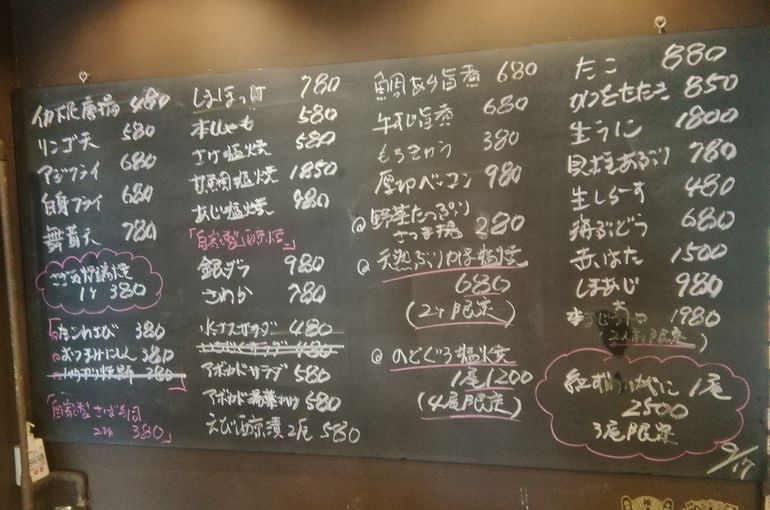 480
リンゴ天 580
アジフライ 680
白身フライ 680
舞茸天 780
1ヶ 380
たこわさび 380
おつまみにしん 380
380
「自家製さば寿司
2ヶ 380」
しまほっけ 780
本ししゃも 580
さけ塩焼 580
甘鯛塩焼 1850
あじ塩焼 980
「自家製西京焼」
銀ダラ 980
さわら 780
水ナスサラダ 480
サラダ 480
アボカドサラダ 580
アボカド湯葉わさ 580
えび西京漬 2尾 580
鯛あら旨煮 680
牛すじ旨煮 680
もろきゅう 380
厚切ベーコン 980
野菜たっぷり
さつま揚 280
天然ぶりかま塩焼
680
(2ヶ限定)
のどぐろ塩焼
1尾1200
(4尾限定)
たこ 880
かつをたたき 850
生うに 1800
貝柱あぶり 780
生しらーす 480
海ぶどう 680
赤はた 1500
しまあじ 980
1980
限定)
紅ずわいがに 1尾
2500
3尾限定
9/17